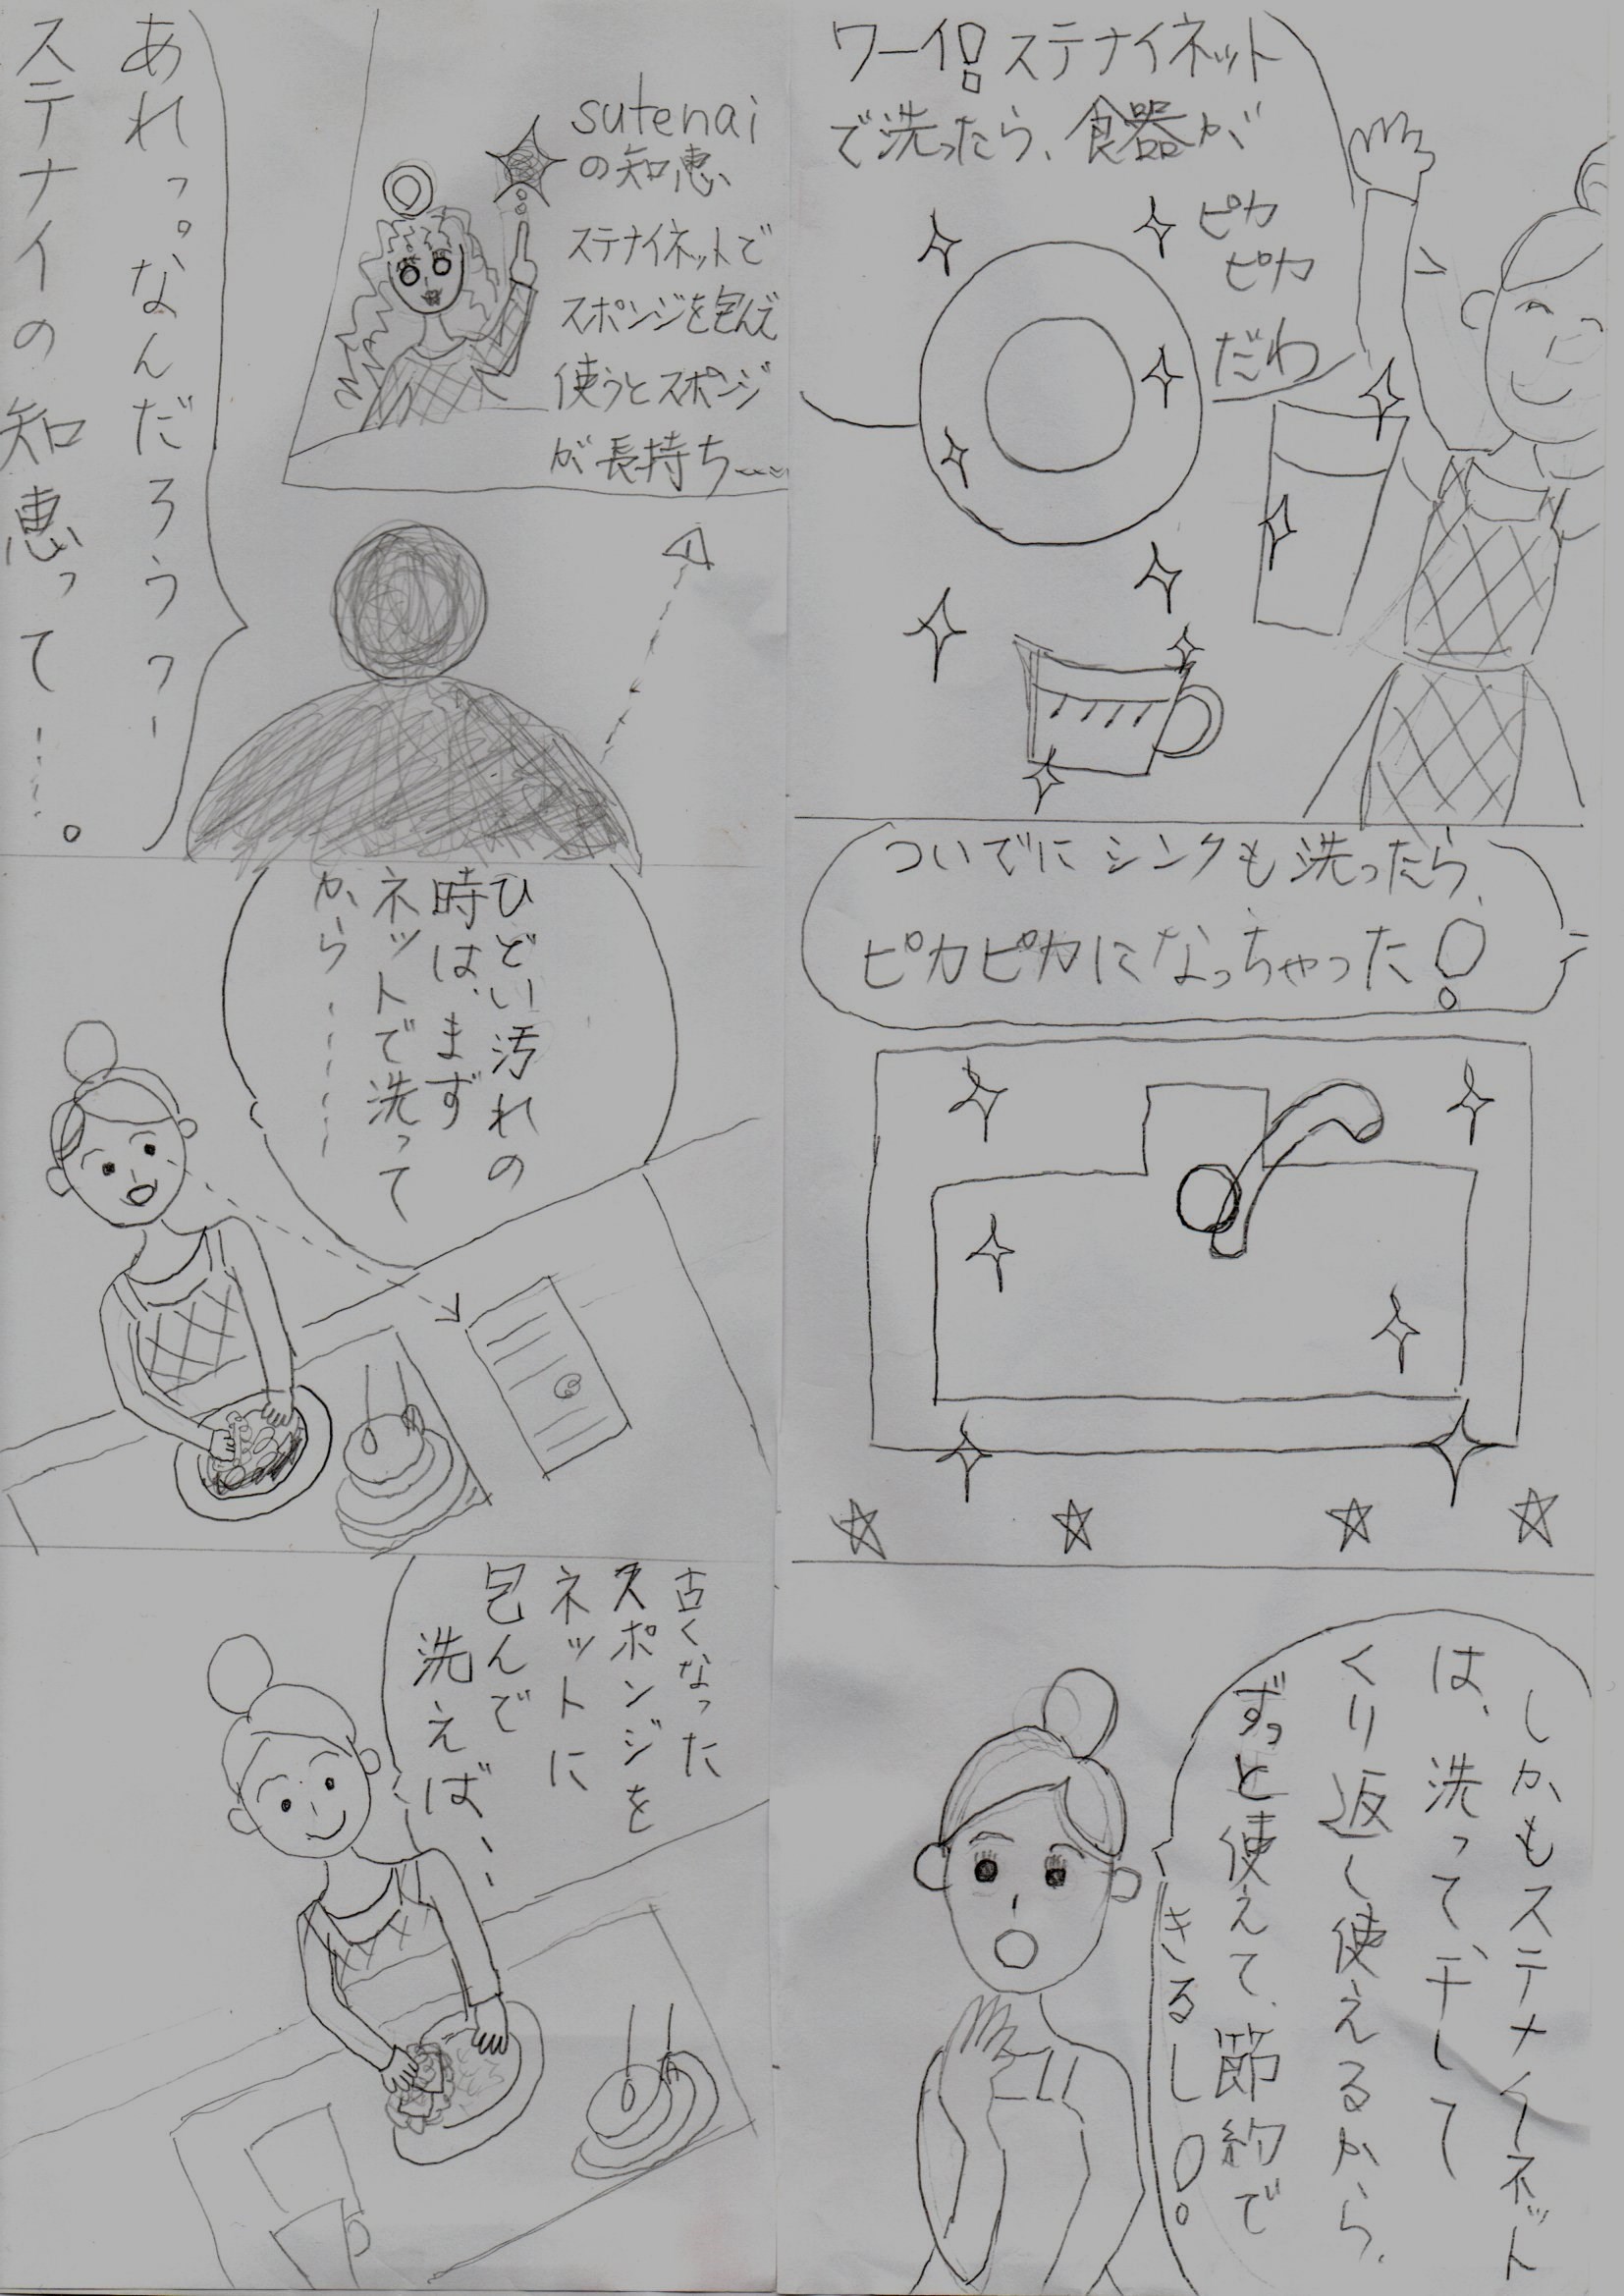 ワーイ!ステナイネット
で洗ったら、食器が
ピカ
ピカ
だわ
ついでにシンクも洗ったら、
ピカピカになっちゃった!
しかもステナイネット
は、洗って干して
くり返し使えるから、
ずっと使えて、節約で
きるし!
sutenai
の知恵
ステナイネットで
スポンジを包んで
使うとスポンジ
が長持ち……
あれっ。なんだろうっー
ステナイの知恵って……。
ひどい汚れの
時は、まず
ネットで洗って
から……
古くなった
スポンジを
ネットに
包んで
洗えば…